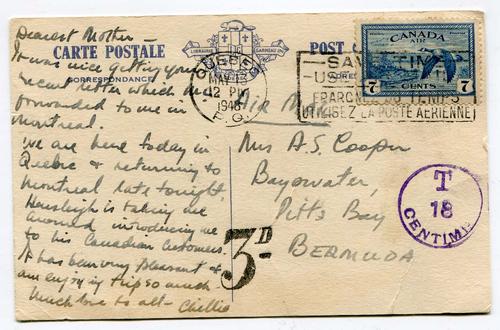 Dearest Mother -
CARTE POSTALE
CORRESPONDANCE
It was nice getting your
recent letter which was
forwarded to me in
Montreal.
We are here today in
Quebec & returning to
Montreal late tonight.
is taking me
around introducing me
to his Canadian Customers.
It has been very pleasant &
am enjoying trip so much
Much love to all -
LIBRAIRIE GARNEAU
POST
QUEBEC
MAY
12 PM
1948
P. Q.
SAVE TIME
US
FRANCHIS
TEMPS
UTILISEZ LA POSTE AERIENNE
CANADA
AIR
7 CENTS 7
Air Mail
Mrs A.S. Cooper
Bayswater,
Pitts Bay
BERMUDA
T
18
CENTIMES
3D